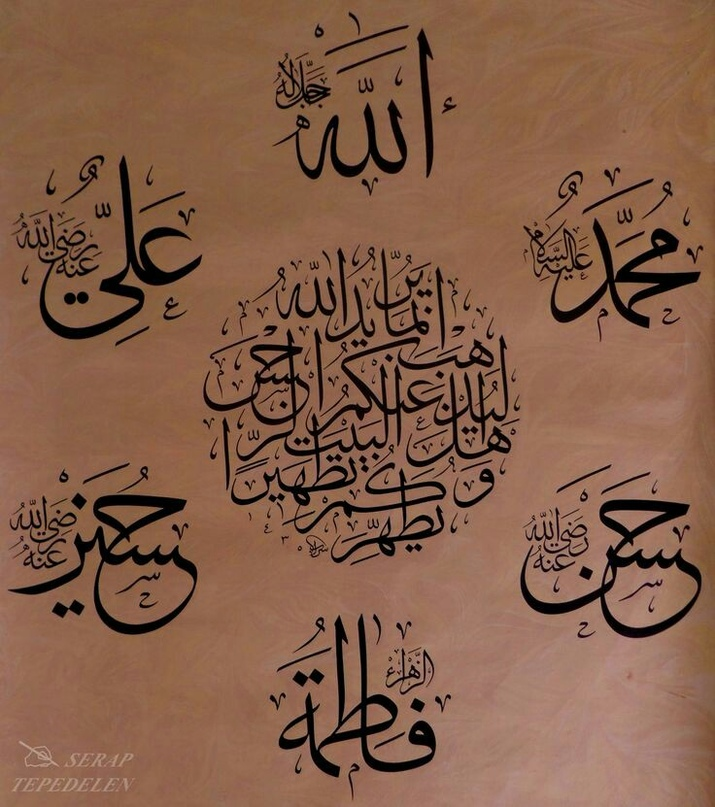 الله جل جلاله
محمد عليه السلام
علي رضي الله عنه
انما يريد الله ليذهب عنكم الرجس اهل البيت ويطهركم تطهيرا
حسن رضي الله عنه
حسين رضي الله عنه
فاطمة الزهراء
SERAP
TEPEDELEN